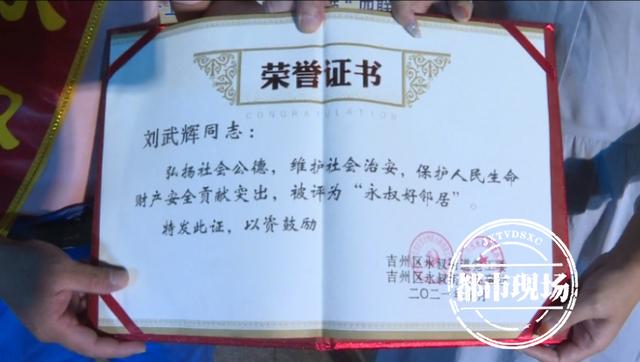 荣誉证书
CONGRATULATION
刘武辉同志：
弘扬社会公德，维护社会治安，保护人民生命
财产安全贡献突出，被评为“永叔好邻居”。
特发此证，以资鼓励
吉州区永叔
吉州区永叔
二〇二一
JXTVDSXC
都市现场